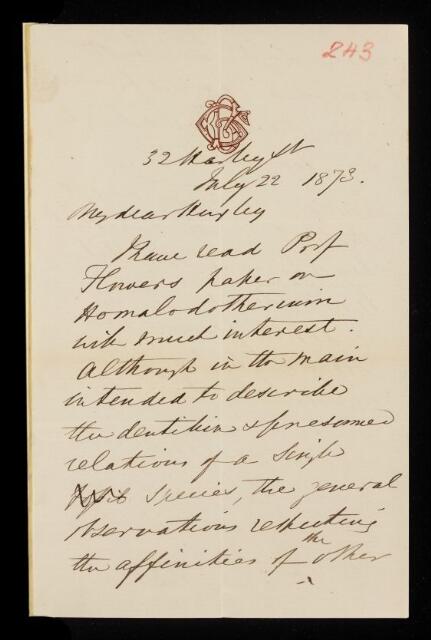 243
32 Harley St
July 22 1873.
My dear Huxley
I have read Prof
Flowers paper on
Homalodotherium
with much interest.
Although in the main
intended to describe
the dentition & presumed
relations of a single
species, the general
observations respecting
the affinities of the other